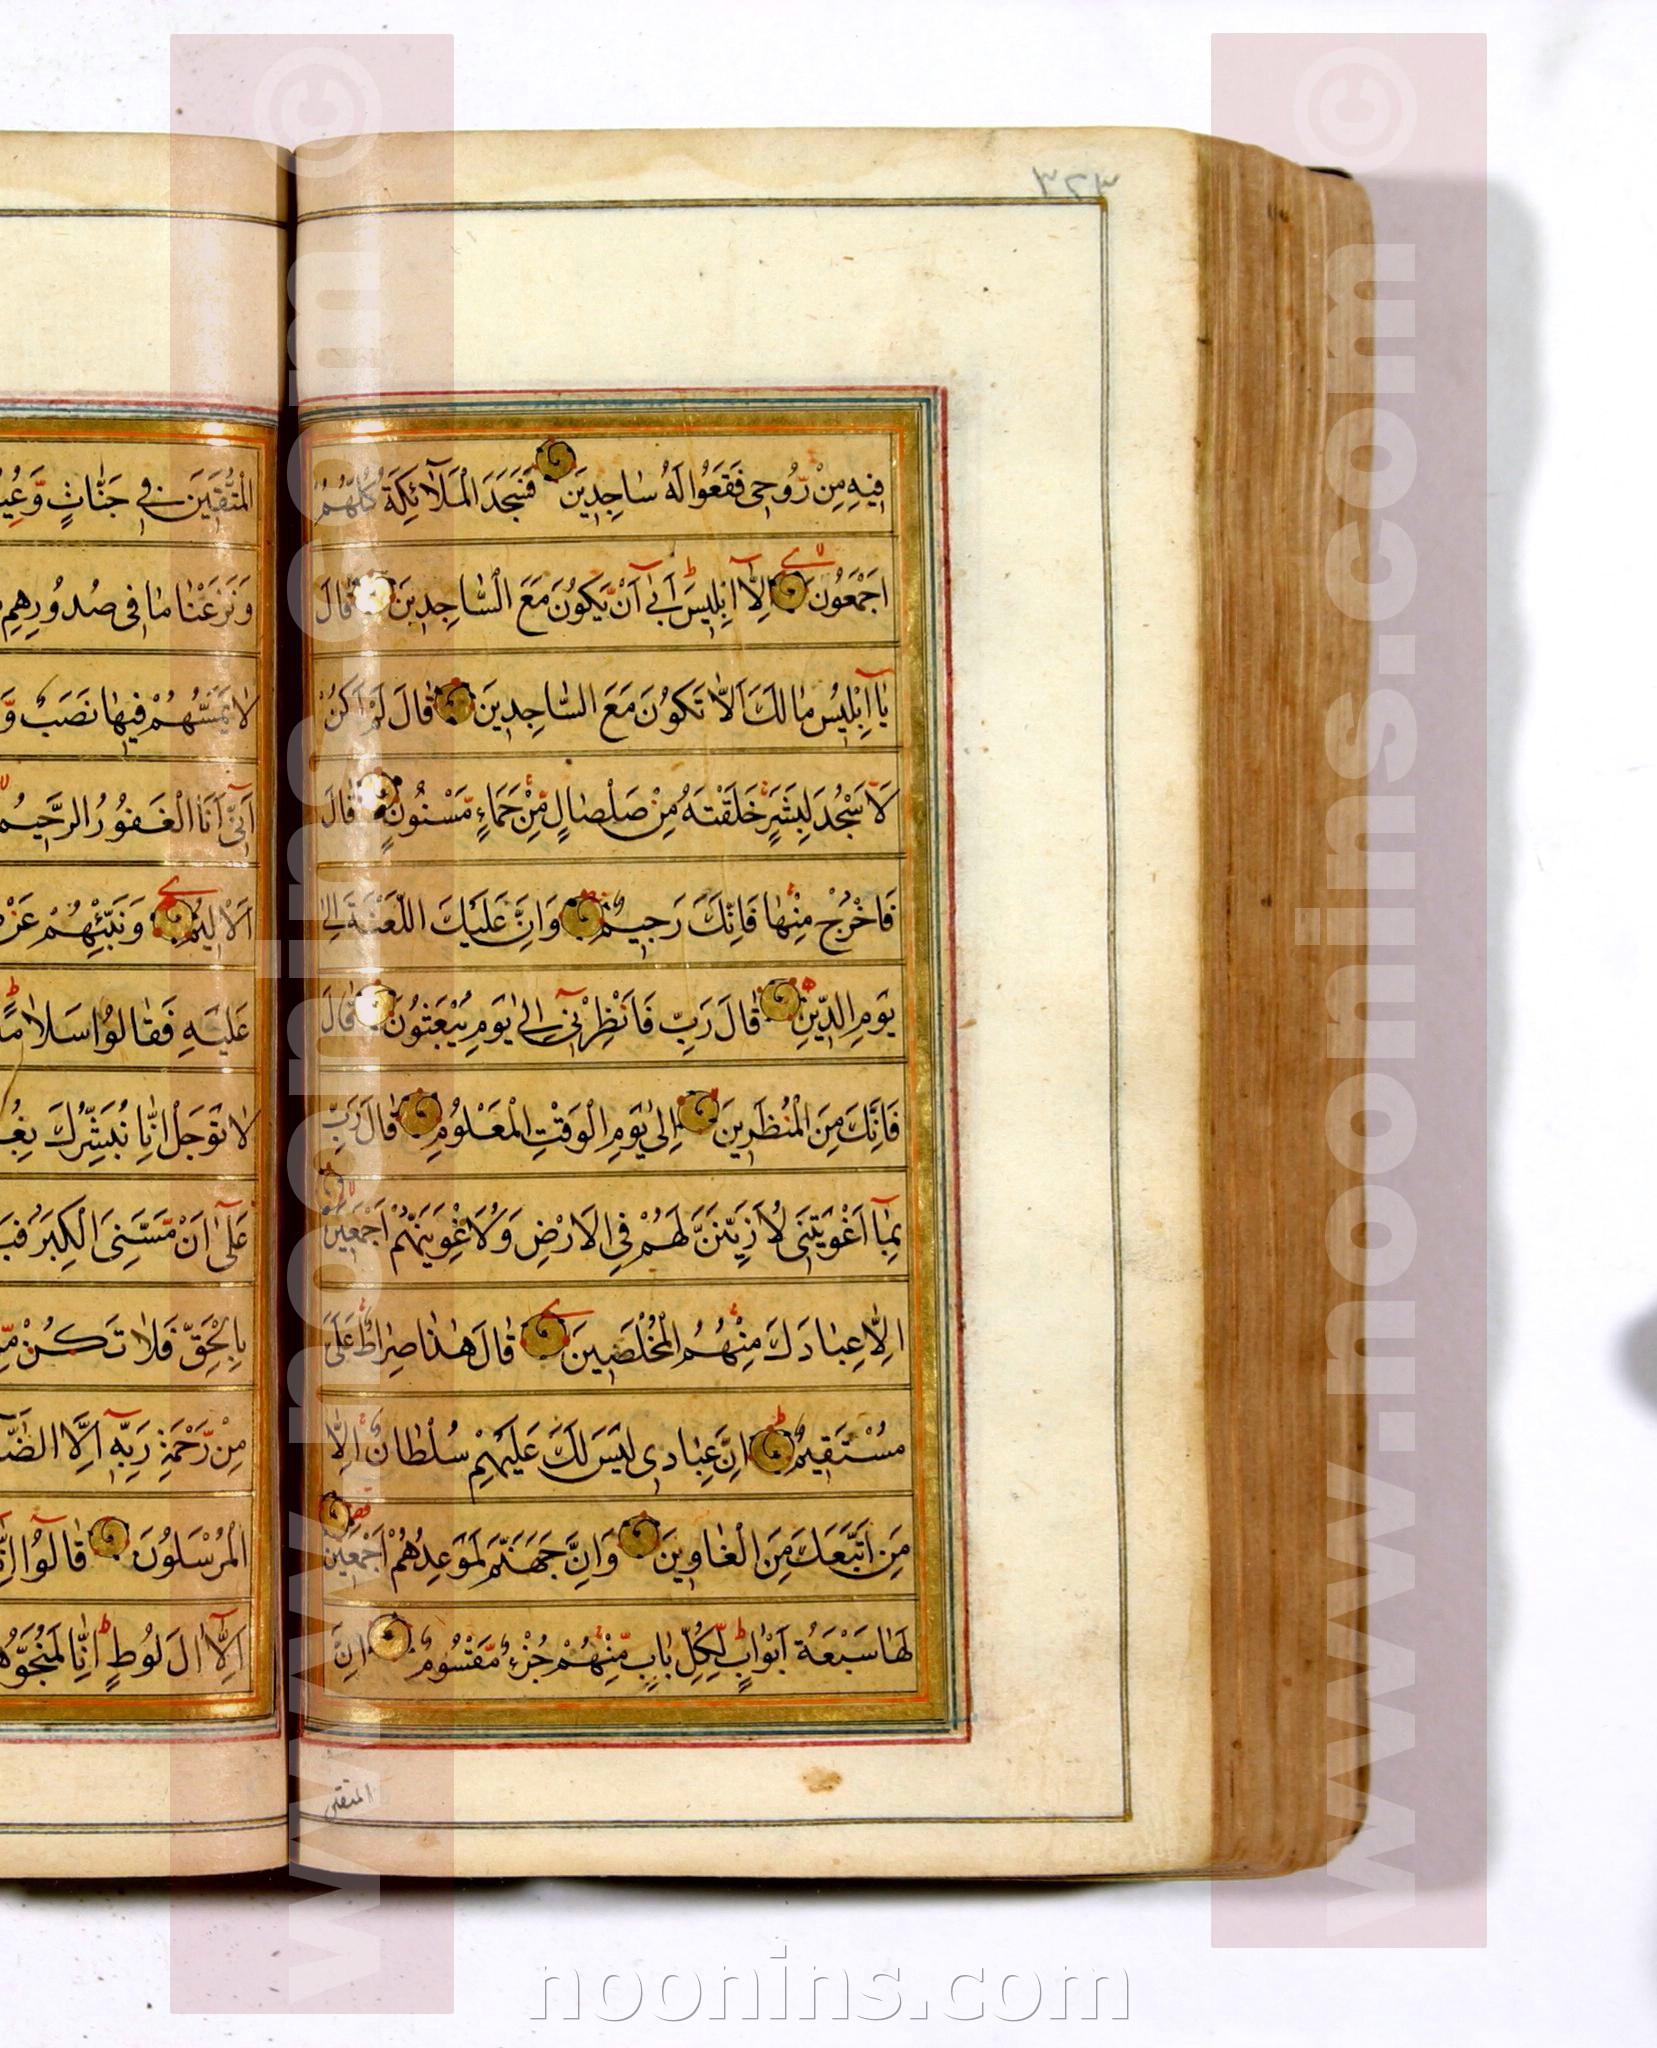 ٣٢٣
فِيهِ مِنْ رُوحِي فَقَعُوا لَهُ سَاجِدِينَ فَسَجَدَ الْمَلَآئِكَةُ كُلُّهُمْ
اَجْمَعُونَ اِلَّآ اِبْلِيسَ اَبٰٓى اَنْ يَكُونَ مَعَ السَّاجِدِينَ قَالَ
يَآ اِبْلِيسُ مَالَكَ اَلَّا تَكُونَ مَعَ السَّاجِدِينَ قَالَ لَمْ اَكُنْ
لِاَسْجُدَ لِبَشَرٍ خَلَقْتَهُ مِنْ صَلْصَالٍ مِنْ حَمَاءٍ مَسْنُونٍ قَالَ
فَاخْرُجْ مِنْهَا فَاِنَّكَ رَجِيمٌ وَاِنَّ عَلَيْكَ اللَّعْنَةَ اِلٰى
يَوْمِ الدِّينِ قَالَ رَبِّ فَاَنْظِرْنِىٓ اِلٰى يَوْمِ يُبْعَثُونَ قَالَ
فَاِنَّكَ مِنَ الْمُنْظَرِينَ اِلٰى يَوْمِ الْوَقْتِ الْمَعْلُومِ قَالَ رَبِّ
بِمَآ اَغْوَيْتَنِى لَاُزَيِّنَنَّ لَهُمْ فِى الْاَرْضِ وَلَاُغْوِيَنَّهُمْ اَجْمَعِينَ
اِلَّا عِبَادَكَ مِنْهُمُ الْمُخْلَصِينَ قَالَ هٰذَا صِرَاطٌ عَلَىَّ
مُسْتَقِيمٌ اِنَّ عِبَادِى لَيْسَ لَكَ عَلَيْهِمْ سُلْطَانٌ اِلَّا
مَنِ اتَّبَعَكَ مِنَ الْغَاوِينَ وَاِنَّ جَهَنَّمَ لَمَوْعِدُهُمْ اَجْمَعِينَ
لَهَا سَبْعَةُ اَبْوَابٍ لِكُلِّ بَابٍ مِنْهُمْ جُزْءٌ مَقْسُومٌ اِنَّ
المتقين
الْمُتَّقِينَ فِى جَنَّاتٍ وَعُيُ
وَنَزَعْنَا مَا فِى صُدُورِهِمْ
لَا يَمَسُّهُمْ فِيهَا نَصَبٌ وَ
اَنِّىٓ اَنَا الْغَفُورُ الرَّحِيمُ
الْاَلِيمُ وَنَبِّئْهُمْ عَنْ
عَلَيْهِ فَقَالُوا سَلَامًا
لَا تَوْجَلْ اِنَّا نُبَشِّرُكَ بِغُ
عَلٰٓى اَنْ مَسَّنِىَ الْكِبَرُ فَبِ
بِالْحَقِّ فَلَا تَكُنْ مِ
مِنْ رَحْمَةِ رَبِّهِٓ اِلَّا الضَّآ
الْمُرْسَلُونَ قَالُوٓا اِنَّ
اِلَّآ اٰلَ لُوطٍ اِنَّا لَمُنَجُّو
© www.noonins.com
© www.noonins.com
noonins.com